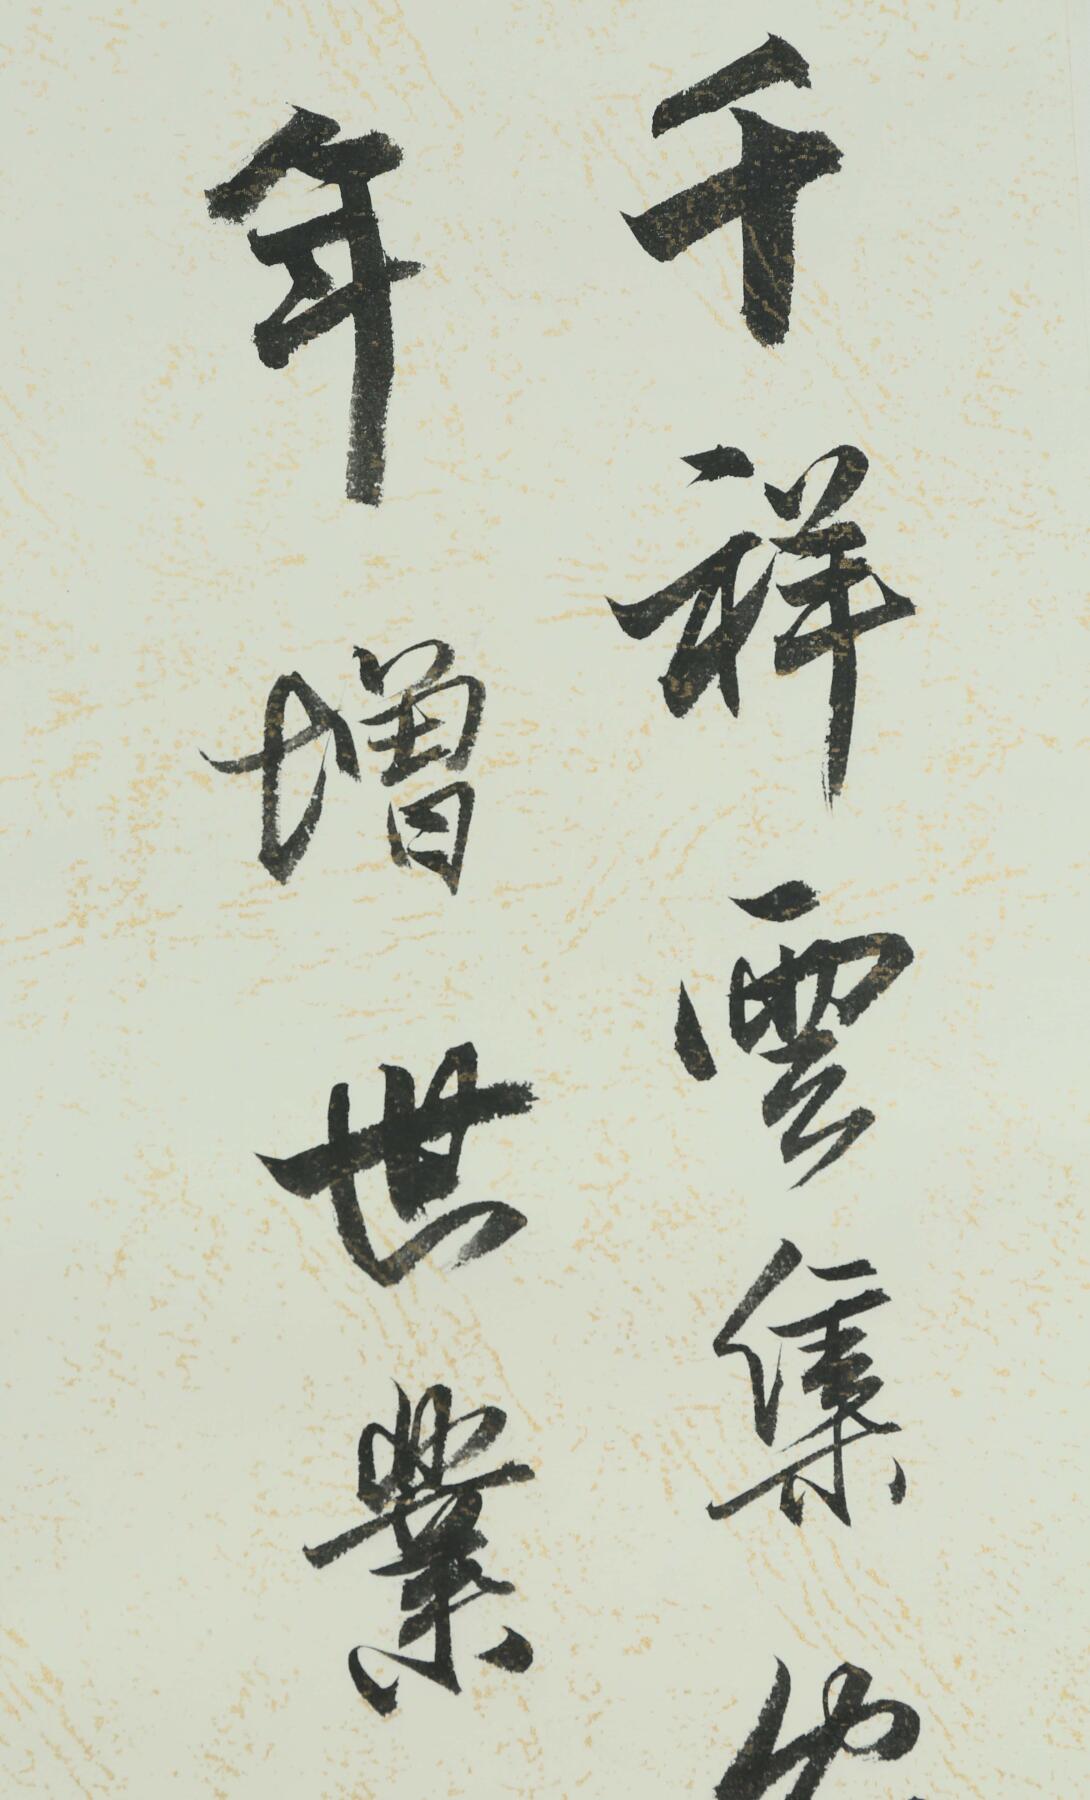 千祥雲集
年增世業